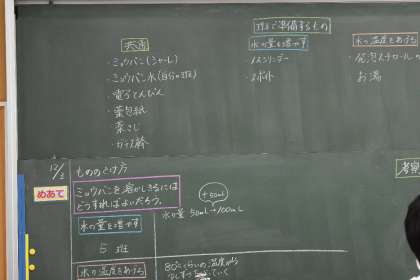 共通
・ミョウバン(シャーレ)
・ミョウバン水(自分の班)
・電子てんびん
・薬包紙
・薬さじ
・ガラス棒
班で準備するもの
水の量を増やす
・メスシリンダー
・スポイト
水の温度を上げる
・発泡スチロールの
お湯
12/2
めあて
もののとけ方
ミョウバンを溶かしきるには
どうすればよいだろう。
水の量を増やす
5班
+50mL
水の量 50mL→100mL
水の温度を上げる
80℃くらいの温度から
考察